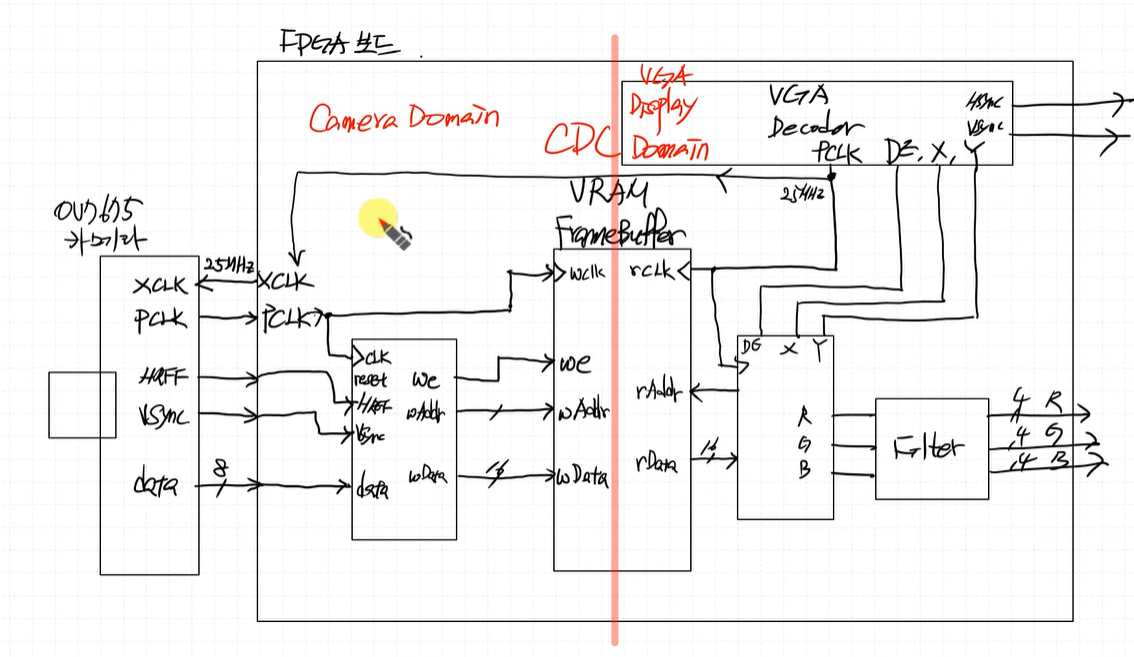 FPGA 보드
Camera Domain
CDC
VGA
Display
Domain
VGA
Decoder
HSync
VSync
PCLK
DE, X, Y
25MHz
VRAM
FrameBuffer
OV7675
카메라
25MHz
XCLK
XCLK
PCLK
PCLK
HREF
VSync
data
8
CLK
reset
HREF
VSync
data
we
wAddr
wData
16
wclk
rCLK
we
wAddr
wData
rAddr
rData
16
DE X Y
R
G
B
Filter
4 R
4 G
4 B